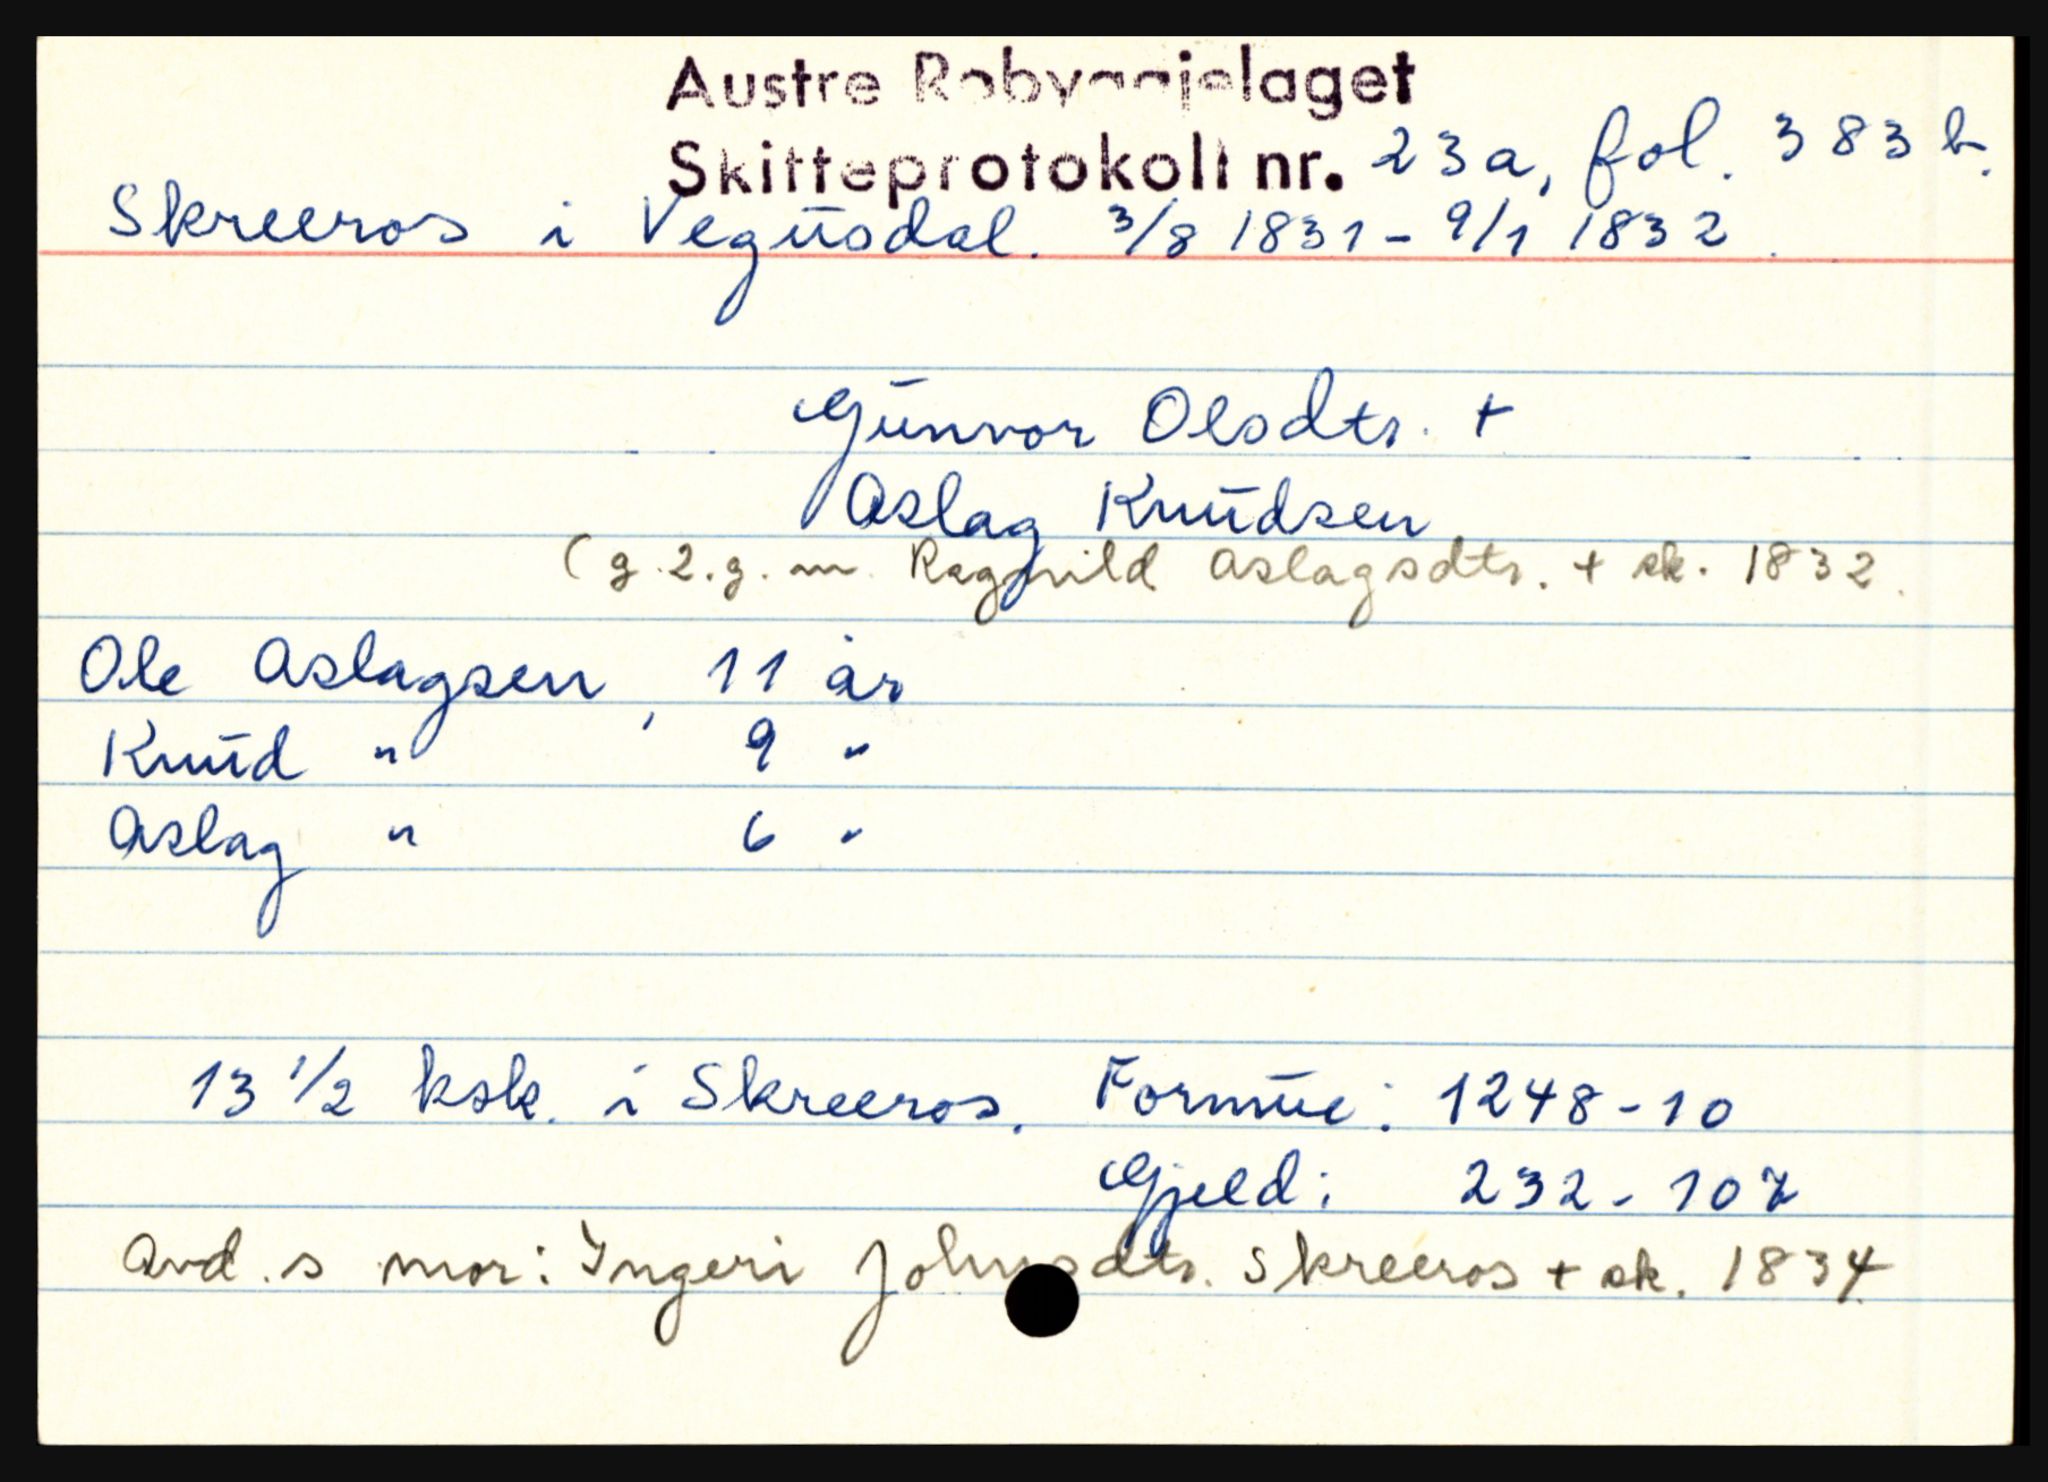 Austre Robyggjelaget
Skifteprotokoll nr. 23a, fol. 383 b.
Skreeros i Vegusdal. 3/8 1831 - 9/1 1832.
Gunvor Olsdtr. +
Aslag Knudsen
(g. 2. g. m. Ragnild Aslagsdtr. + sk. 1832.
Ole Aslagsen, 11 år
Knud " 9 "
Aslag " 6 "
13 1/2 ksk. i Skreeros. Formue: 1248-10
Gjeld: 232-107
Avd. s mor: Ingeri Johnsdtr. Skreeros + sk. 1834.